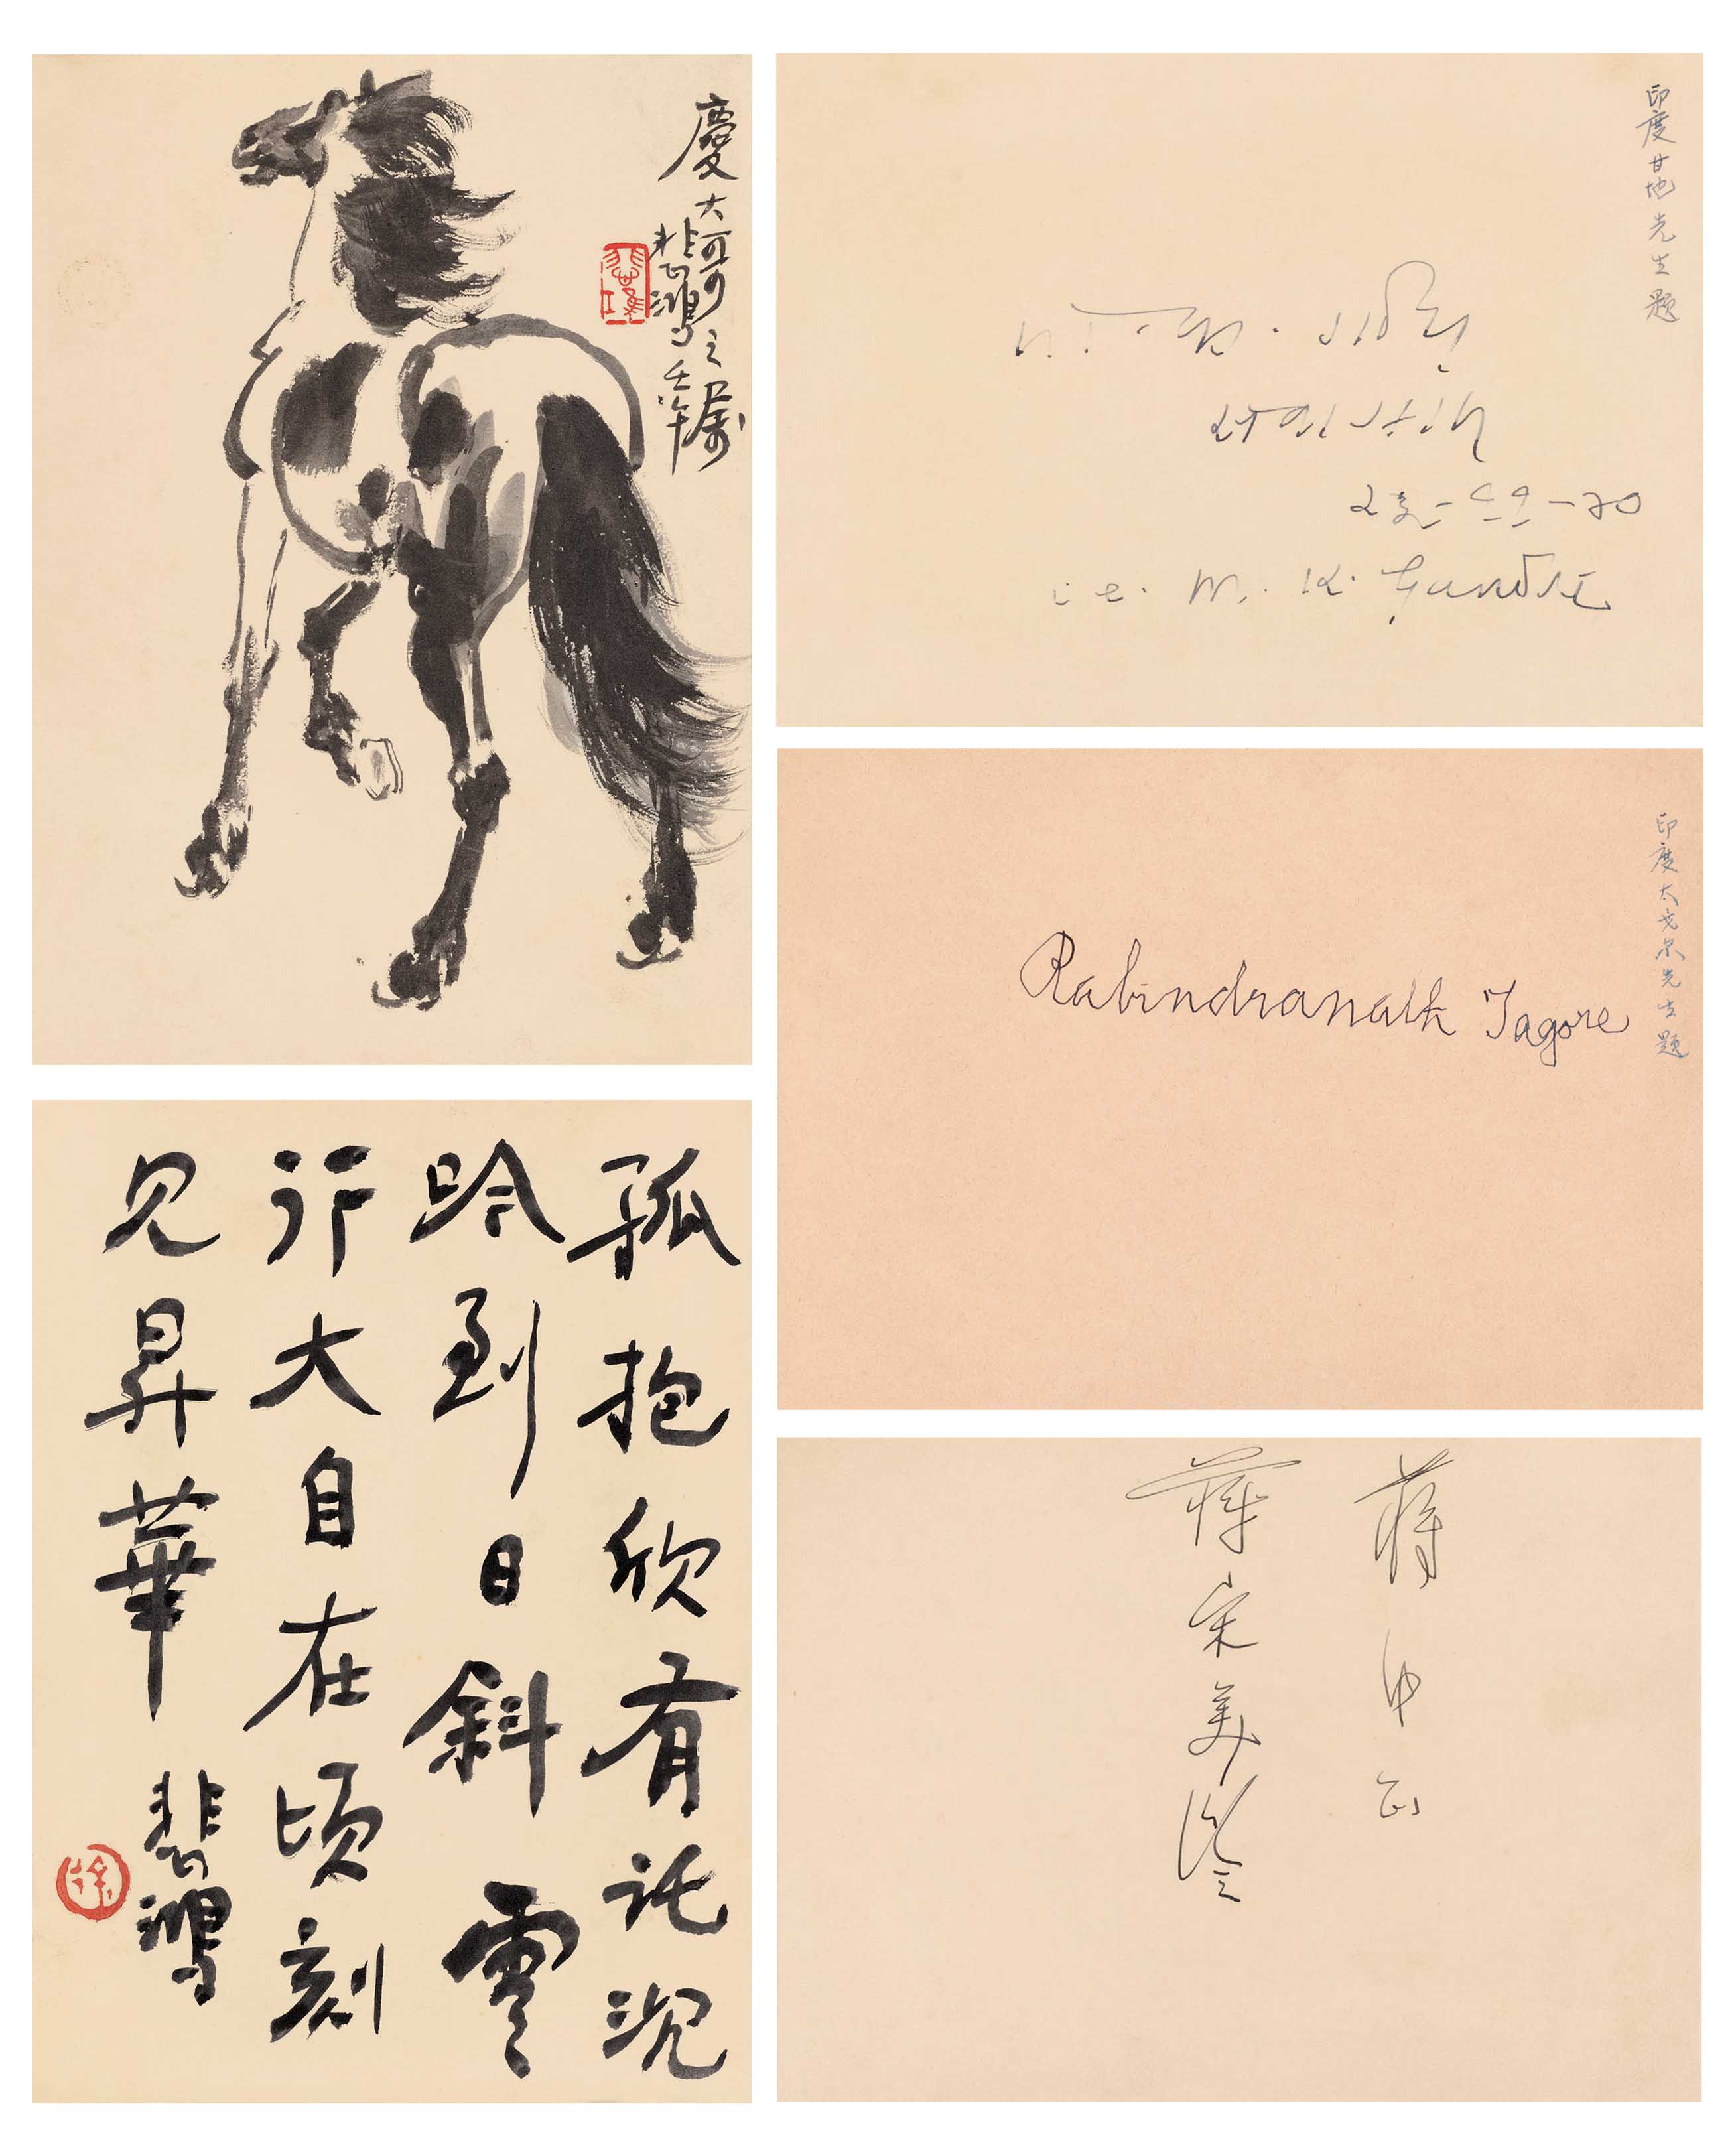 慶大哥之属
悲鴻壬午
孤抱欣有託沉
吟到日斜雲
行大自在頃刻
見昇華
悲鴻
徐
印度甘地先生題
i.e. M. K. Gandhi
印度太戈尔先生題
Rabindranath Tagore
蔣中正
蔣宋美齡